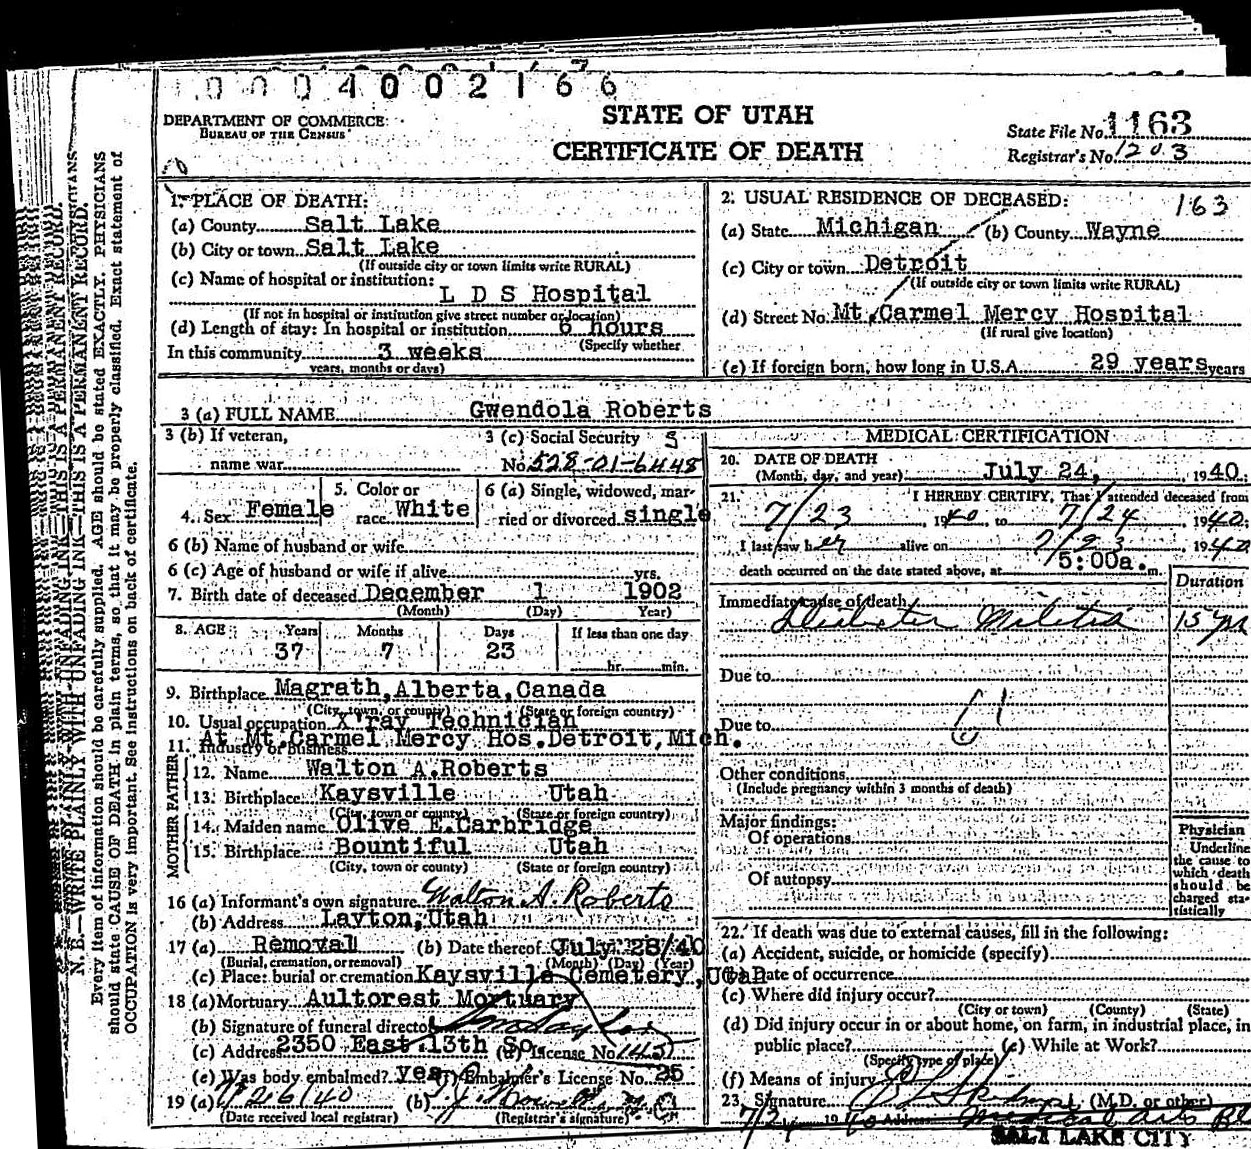 0 0 0 4 0 0 2 1 6 6
STATE OF UTAH
CERTIFICATE OF DEATH
DEPARTMENT OF COMMERCE
BUREAU OF THE CENSUS
State File No. 1163
Registrar's No. 1203
N. B.—WRITE PLAINLY WITH UNFADING INK—THIS IS A PERMANENT RECORD.
Every item of information should be carefully supplied. AGE should be stated EXACTLY. PHYSICIANS
should state CAUSE OF DEATH in plain terms, so that it may be properly classified. Exact statement of
OCCUPATION is very important. See instructions on back of certificate.
1. PLACE OF DEATH:
(a) County Salt Lake
(b) City or town Salt Lake
(If outside city or town limits write RURAL)
(c) Name of hospital or institution:
L D S Hospital
(If not in hospital or institution give street number or location)
(d) Length of stay: In hospital or institution 6 hours
(Specify whether
In this community 3 weeks
years, months or days)
2. USUAL RESIDENCE OF DECEASED: 163
(a) State Michigan (b) County Wayne
(c) City or town Detroit
(If outside city or town limits write RURAL)
(d) Street No. Mt. Carmel Mercy Hospital
(If rural give location)
(e) If foreign born, how long in U.S.A. 29 years years
3 (a) FULL NAME Gwendola Roberts
3 (b) If veteran,
name war
3 (c) Social Security
No. 528-01-6448
4. Sex Female
5. Color or
race White
6 (a) Single, widowed, mar-
ried or divorced single
6 (b) Name of husband or wife
6 (c) Age of husband or wife if alive yrs.
7. Birth date of deceased December 1 1902
(Month) (Day) Year)
8. AGE Years Months Days If less than one day
37 7 23 hr. min.
9. Birthplace Magrath, Alberta, Canada
(City, town, or county) (State or foreign country)
10. Usual occupation X'ray Technician
11. Industry or Business At Mt. Carmel Mercy Hos. Detroit, Mich.
FATHER
12. Name Walton A. Roberts
13. Birthplace Kaysville Utah
(City, town or county) (State or foreign country)
MOTHER
14. Maiden name Olive E. Carbridge
15. Birthplace Bountiful Utah
(City, town or county) (State or foreign country)
16 (a) Informant's own signature Walton A. Roberts
(b) Address Layton, Utah
17 (a) Removal (b) Date thereof July 28/40
(Burial, cremation, or removal) (Month) (Day) (Year)
(c) Place: burial or cremation Kaysville Cemetery, Utah
18 (a) Mortuary Aultorest Mortuary
(b) Signature of funeral director
(c) Address 2350 East 13th So. (d) License No. 145
(e) Was body embalmed? yes (f) Embalmer's License No. 25
19 (a) 7/26/40 (b)
(Date received local registrar) (Registrar's signature)
MEDICAL CERTIFICATION
20. DATE OF DEATH
(Month, day, and year) July 24, 1940.
21. I HEREBY CERTIFY, That I attended deceased from
7/23 1940, to 7/24 1940.
I last saw her alive on 7/23, 1940
death occurred on the date stated above, at 5:00a.m.
Duration
Immediate cause of death
Diabetes Militis 15 yrs
Due to
Due to
Other conditions
(Include pregnancy within 3 months of death)
Major findings:
Of operations
Of autopsy
Physician
Underline
the cause to
which death
should be
charged sta-
tistically
22. If death was due to external causes, fill in the following:
(a) Accident, suicide, or homicide (specify)
(b) Date of occurrence
(c) Where did injury occur?
(City or town) (County) (State)
(d) Did injury occur in or about home, on farm, in industrial place, in
public place? (e) While at Work?
(Specify type of place)
(f) Means of injury
23. Signature (M.D. or other)
1940 Address Medical Arts
SALT LAKE CITY